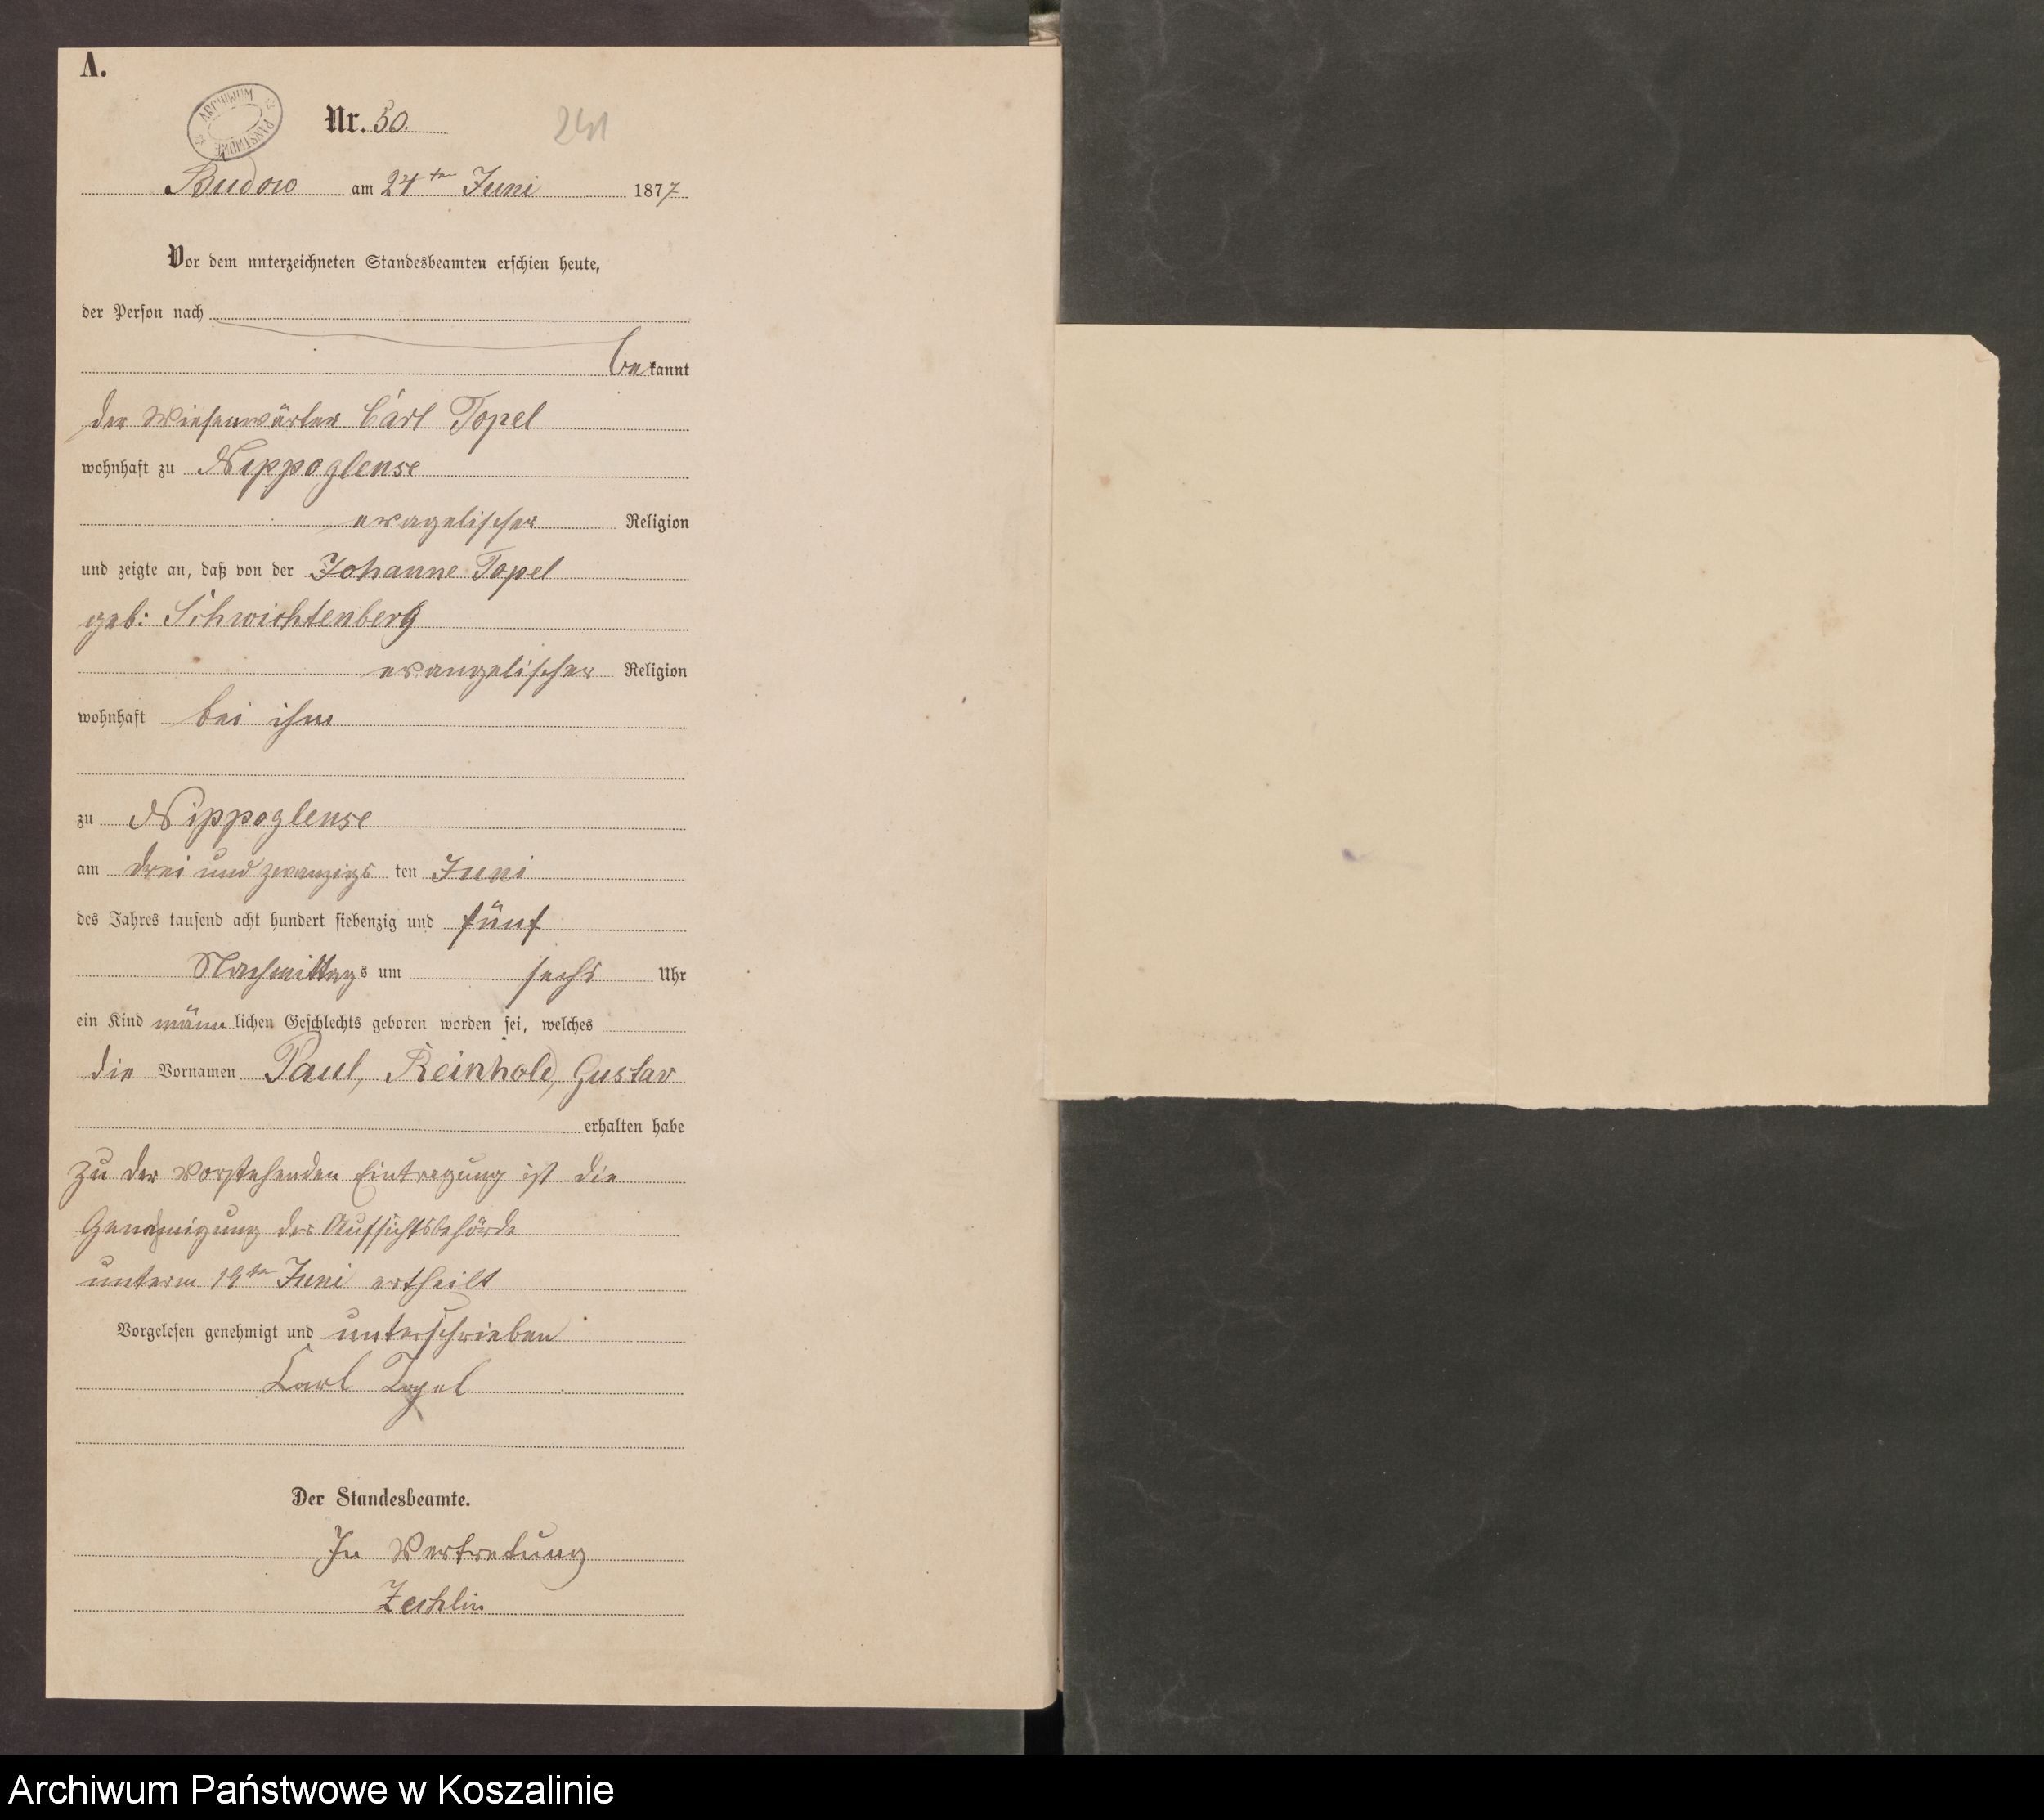 A.
ARCHIWUM PAŃSTWOWE
Nr. 50.
241
Budow am 24ten Juni 1877
Vor dem unterzeichneten Standesbeamten erschien heute,
der Person nach
bekannt
der Wiesenwärter Carl Topel
wohnhaft zu Nippoglense
evagelischer Religion
und zeigte an, daß von der Johanne Topel
geb: Schwichtenberg
evangelischer Religion
wohnhaft bei ihm
zu Nippoglense
am drei und zwanzigs ten Juni
des Jahres tausend acht hundert siebenzig und fünf
Nachmittags um sechs Uhr
ein Kind männlichen Geschlechts geboren worden sei, welches
die Vornamen Paul, Reinhold, Gustav
erhalten habe
Zu der vorstehenden Eintragung ist die
Genehmigung der Aufsichtsbehörde
unterm 19ten Juni ertheilt
Vorgelesen genehmigt und unterschrieben
Carl Topel
Der Standesbeamte.
In Vertretung
Zechlin
Archiwum Państwowe w Koszalinie